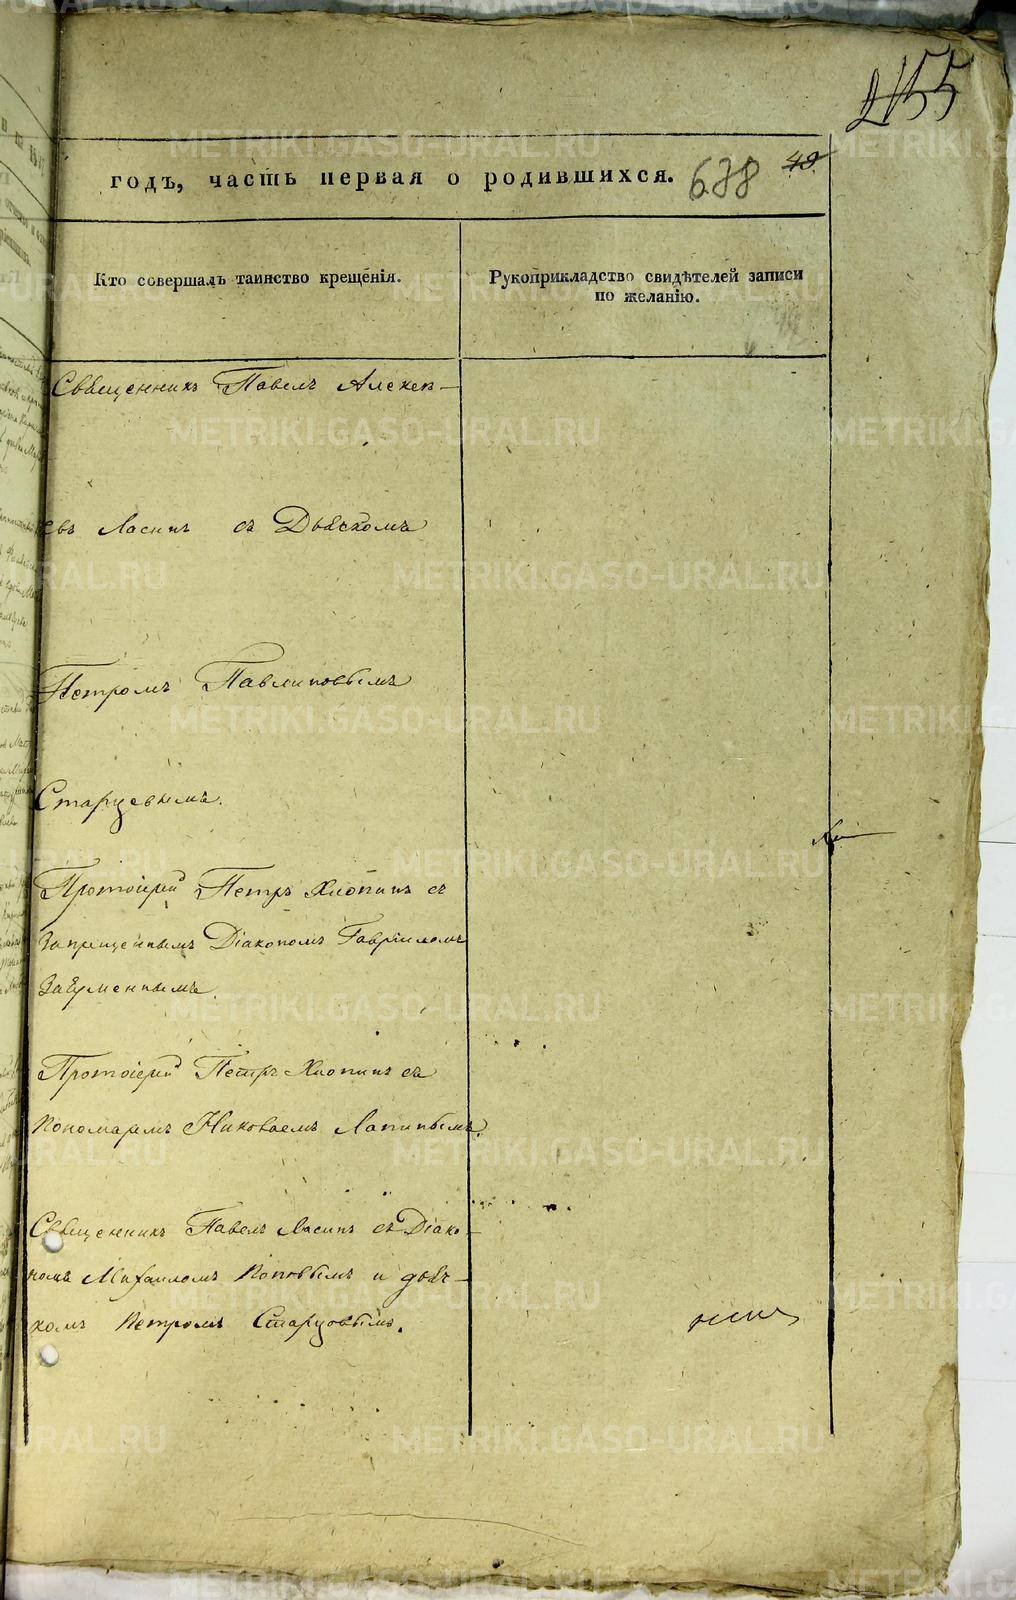 2155
годъ, часть первая о родившихся. 638 48
Кто совершалъ таинство крещенія.
Рукоприкладство свидѣтелей записи
по желанію.
Священникъ Павелъ Алекѣ-
евъ Ласинъ съ Дьячкомъ
Петромъ Павлиновымъ
Старцевымъ.
Протоіерей Петръ Хлопинъ съ
Запрещеннымъ Діакономъ Гавріиломъ
Протоіерей Петръ Хлопинъ съ
Пономаремъ Николаемъ Лапинымъ.
Священникъ Павелъ Ласинъ съ Діако-
номъ Михаиломъ Поповымъ и дьяч-
комъ Петромъ Старцовымъ.
METRIKI.GASO-URAL.RU